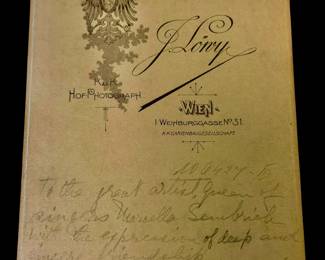 J. Löwy
K.u.K.
Hof-Photograph.
WIEN
I Weihburggasse No 31
K.K. Gartenbaugesellschaft
To the great artist, Queen of
singers Marcella Sembrich
with the expression of deep and
sincere friendship